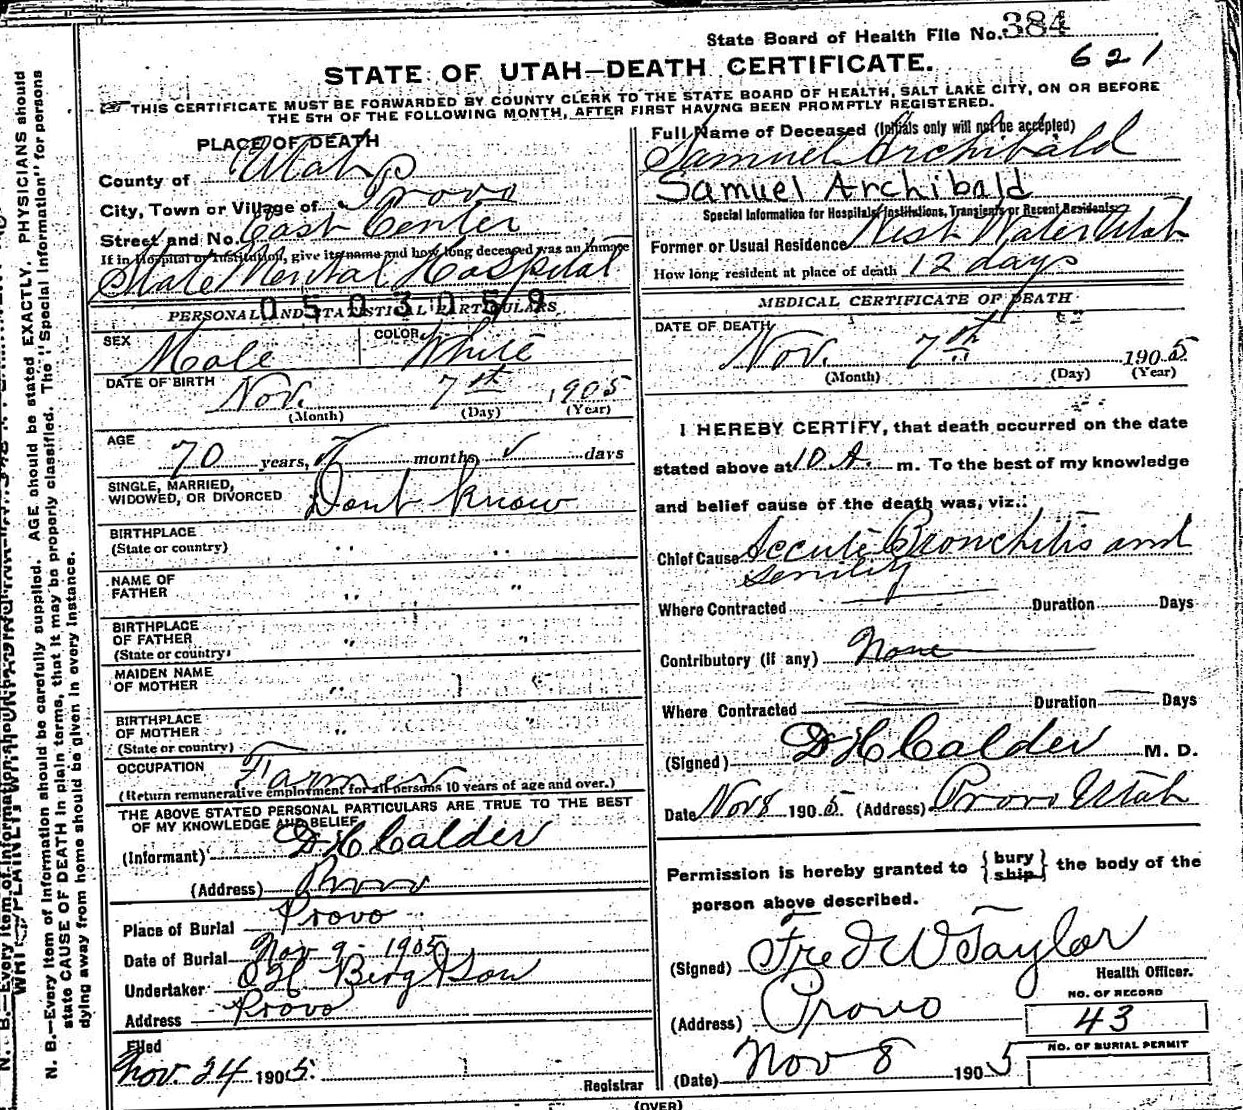 State Board of Health File No. 384
621
STATE OF UTAH—DEATH CERTIFICATE.
THIS CERTIFICATE MUST BE FORWARDED BY COUNTY CLERK TO THE STATE BOARD OF HEALTH, SALT LAKE CITY, ON OR BEFORE
THE 5TH OF THE FOLLOWING MONTH, AFTER FIRST HAVING BEEN PROMPTLY REGISTERED.
PLACE OF DEATH
County of Utah
City, Town or Village of Provo
Street and No. East Center
If in Hospital or Institution, give its name and how long deceased was an Inmate
State Mental Hospital
0503059
PERSONAL AND STATISTICAL PARTICULARS
SEX Male COLOR White
DATE OF BIRTH Nov. 7th 1905
(Month) (Day) (Year)
AGE 70 years, months, days
SINGLE, MARRIED,
WIDOWED, OR DIVORCED Dont Know
BIRTHPLACE
(State or country) " "
NAME OF
FATHER " "
BIRTHPLACE
OF FATHER
(State or country) " "
MAIDEN NAME
OF MOTHER " "
BIRTHPLACE
OF MOTHER
(State or country) " "
OCCUPATION Farmer
(Return remunerative employment for all persons 10 years of age and over.)
THE ABOVE STATED PERSONAL PARTICULARS ARE TRUE TO THE BEST
OF MY KNOWLEDGE AND BELIEF
(Informant) D H Calder
(Address) Provo
Place of Burial Provo
Date of Burial Nov 9 - 1905
Undertaker O H Berg & Son
Address Provo
Filed
Nov. 24 1905. Registrar
Full Name of Deceased (Initials only will not be accepted)
Samuel Archibald
Samuel Archibald
Special Information for Hospitals, Institutions, Transients or Recent Residents.
Former or Usual Residence West Water Utah
How long resident at place of death 12 days
MEDICAL CERTIFICATE OF DEATH
DATE OF DEATH
Nov. 7th 1905
(Month) (Day) (Year)
I HEREBY CERTIFY, that death occurred on the date
stated above at 10 A. m. To the best of my knowledge
and belief cause of the death was, viz.:
Chief Cause Accute Bronchitis and
senility
Where Contracted Duration Days
Contributory (if any) None
Where Contracted Duration Days
(Signed) D H Calder M. D.
Date Nov 8 1905. (Address) Provo Utah
Permission is hereby granted to {bury ship} the body of the
person above described.
(Signed) Fred W Taylor
Health Officer.
(Address) Provo
NO. OF RECORD
43
(Date) Nov 8 1905
NO. OF BURIAL PERMIT
(OVER)
N. B.—Every item of information should be carefully supplied. AGE should be stated EXACTLY. PHYSICIANS should
state CAUSE OF DEATH in plain terms, that it may be properly classified. The "Special Information" for persons
dying away from home should be given in every instance.